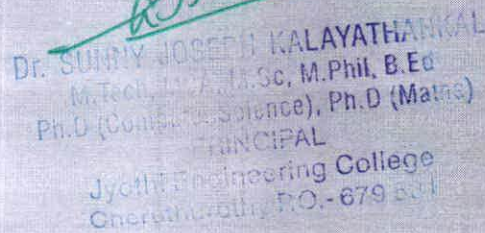 Dr. SUNNY JOSEPH KALAYATHANKAL
M.Tech, M.C.A, M.Sc, M.Phil, B.Ed
Ph.D (Computer Science), Ph.D (Maths)
PRINCIPAL
Jyothi Engineering College
Cheruthuruthy P.O.- 679 531